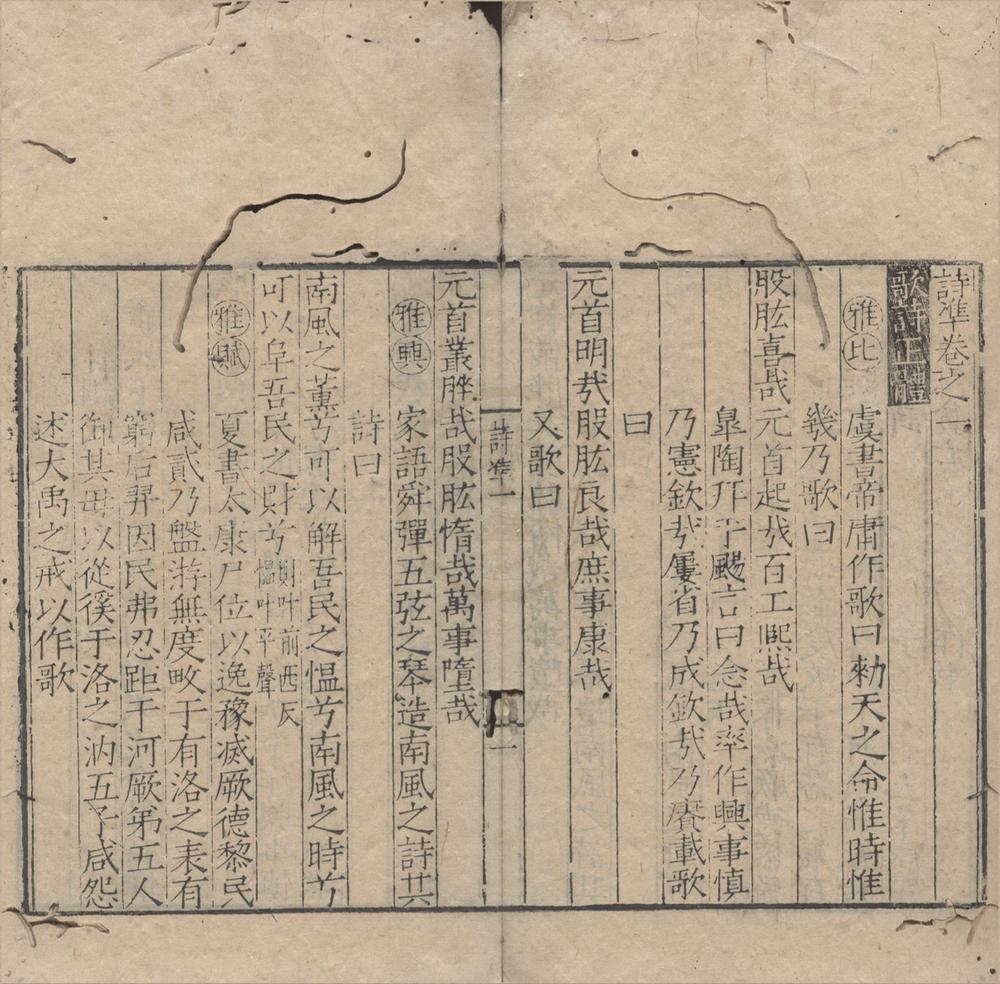 詩準卷之一
歌詩正體
雅比 虞書帝庸作歌曰勑天之命惟時惟
幾乃歌曰
股肱喜哉元首起哉百工熙哉
皐陶拜手颺言曰念哉率作興事慎
乃憲欽哉屢省乃成欽哉乃賡載歌
曰
元首明哉股肱良哉庶事康哉
又歌曰
詩準一
一
元首叢脞哉股肱惰哉萬事墮哉
雅興 家語舜彈五弦之琴造南風之詩其
詩曰
南風之薫兮可以解吾民之愠兮南風之時兮
可以阜吾民之財兮 財叶前西反愠叶平聲
雅賦 夏書太康尸位以逸豫滅厥德黎民
咸貳乃盤游無度畋于有洛之表有
窮后羿因民弗忍距于河厥弟五人
御其母以從徯于洛之汭五子咸怨
述大禹之戒以作歌